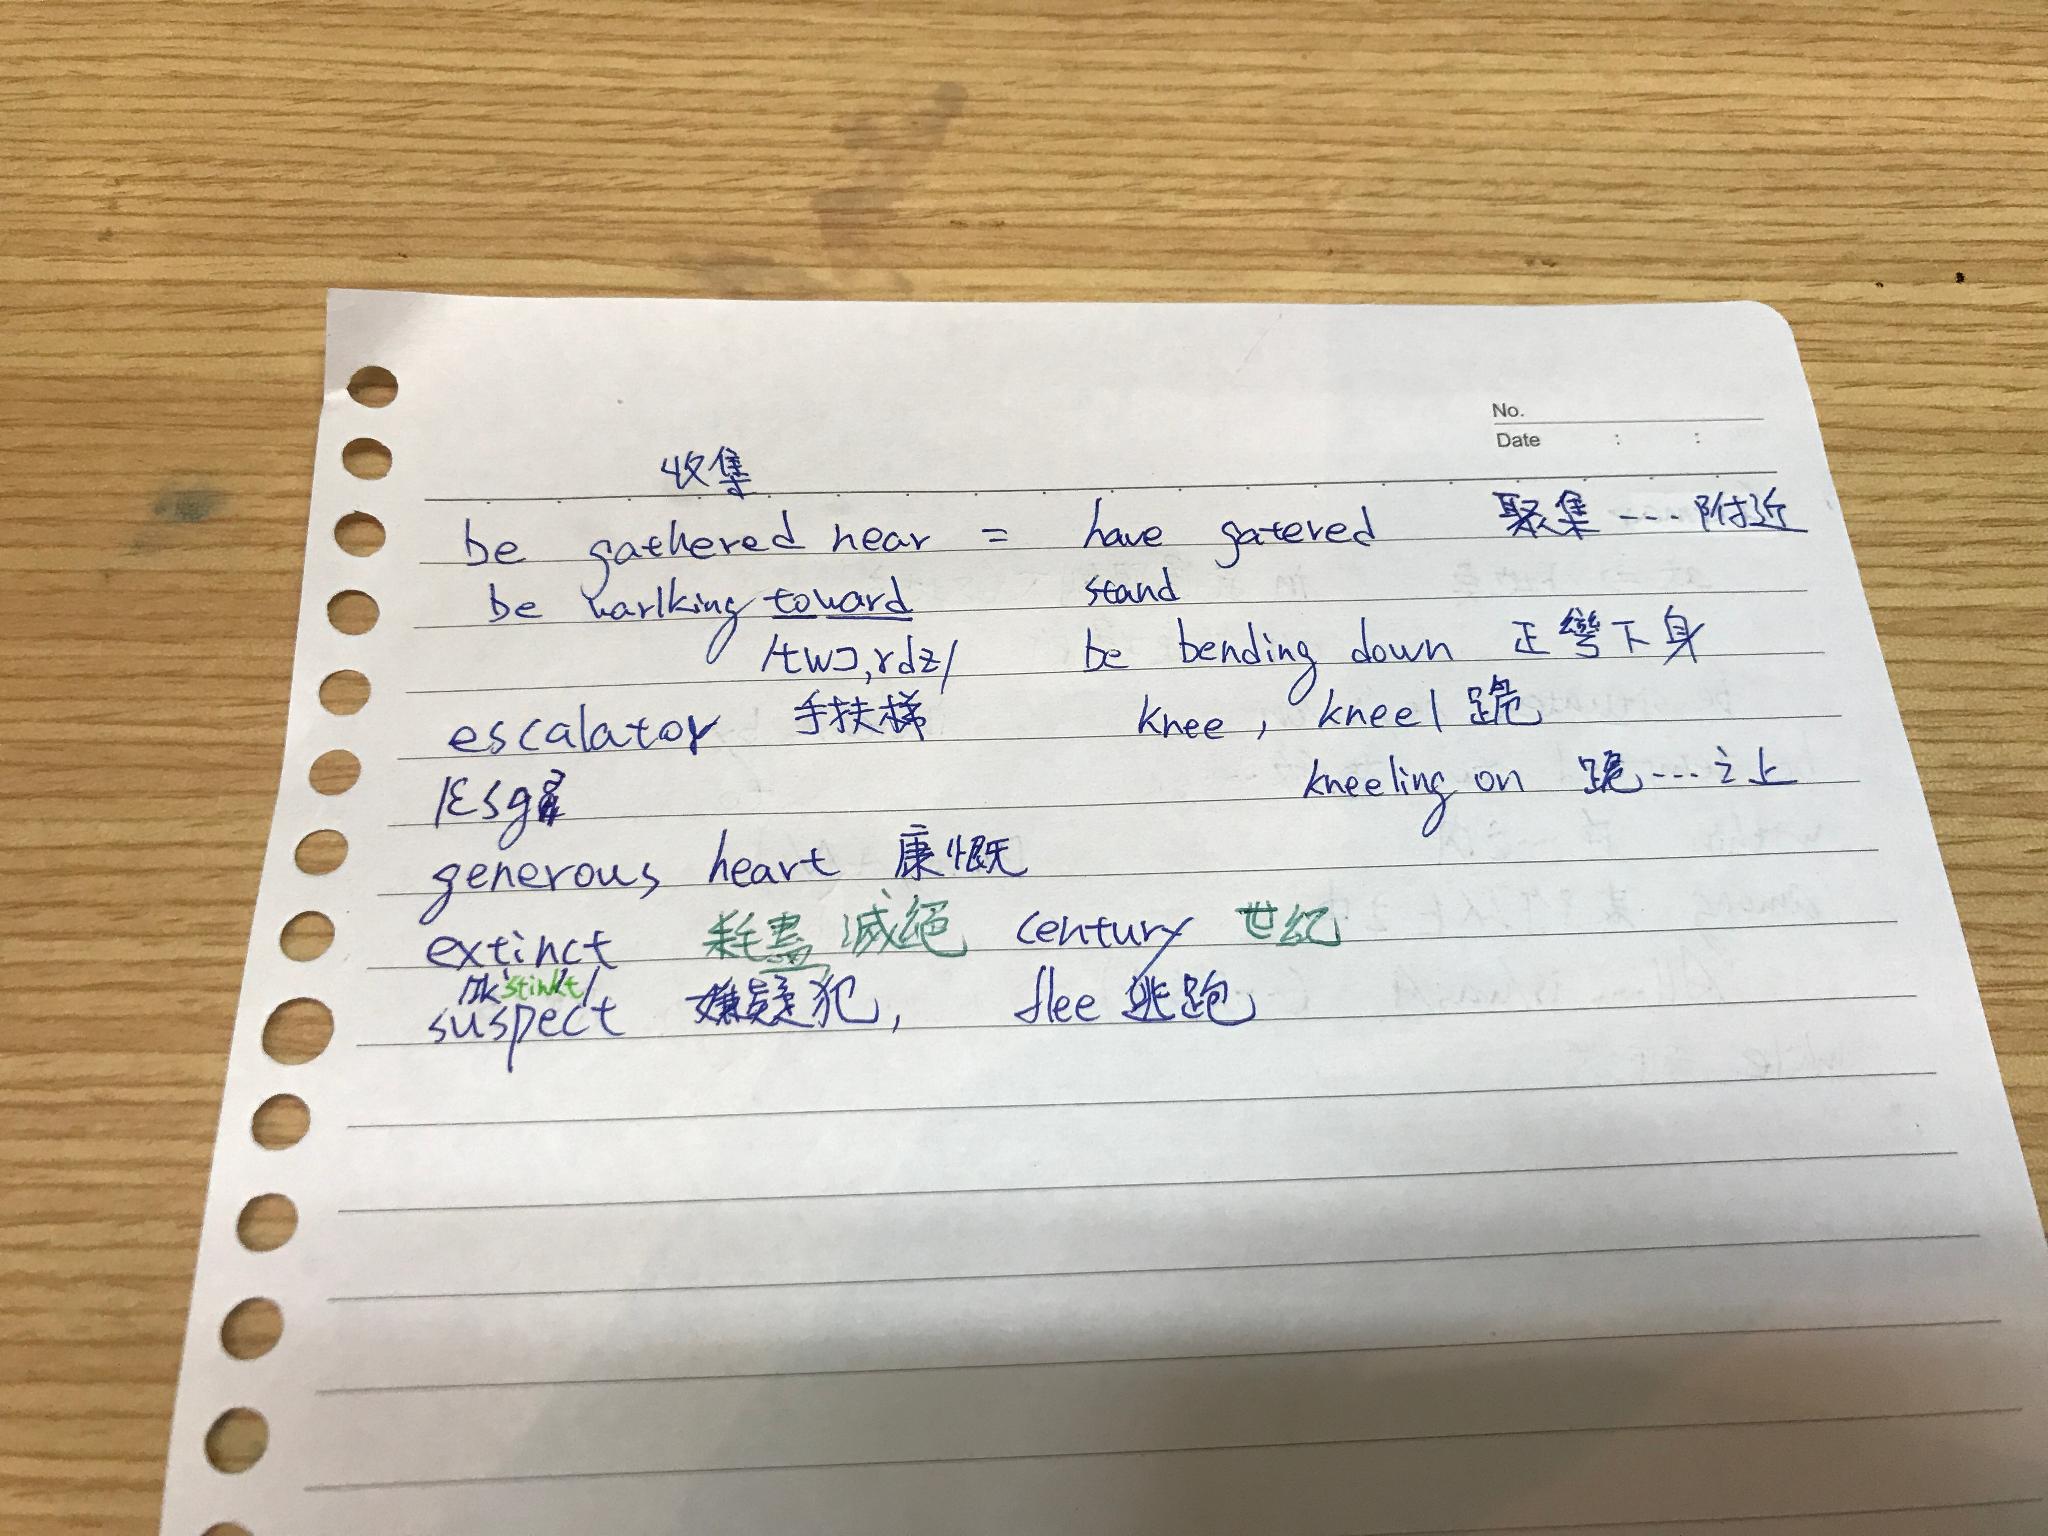 No.
Date : :
收集
be gathered near = have gatered 聚集---附近
be warlking toward stand
/twɔ,rdz/ be bending down 正彎下身
escalator 手扶梯 knee, kneel 跪
/ɛsg kneeling on 跪...之上
generous heart 康慨
extinct 耗盡 滅絕 century 世紀
/ɪk'stinkt/
suspect 嫌疑犯, flee 逃跑